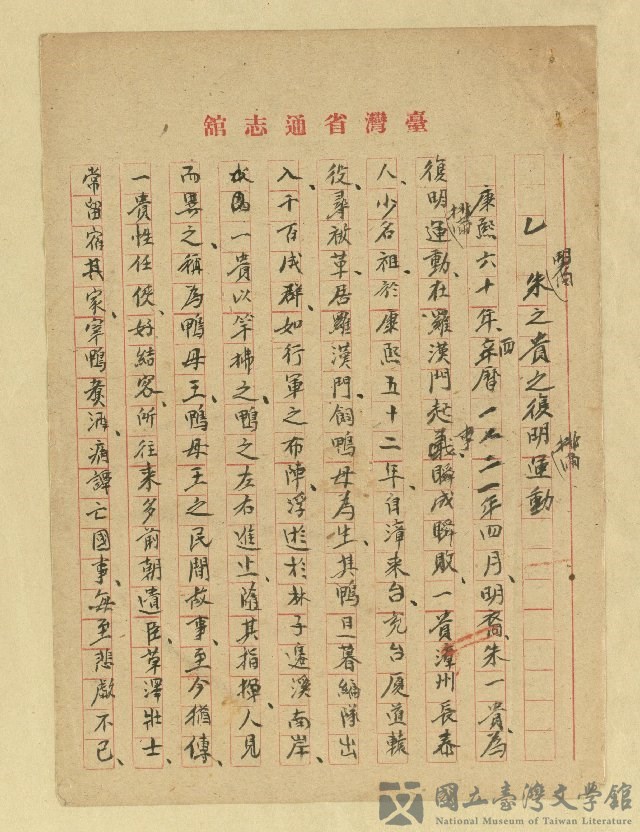 臺灣省通志館
乙 朱之貴之復明運動
明裔
排滿
康熙六十年、西曆一七二一年四月、明裔朱一貴、為
復明運動、在羅漢門起事、瞬成瞬敗、一貴漳州長泰
排滿
人、少名祖、於康熙五十二年、自漳來台、充台厦道轅
役、尋被革、居羅漢門、飼鴨母為生、其鴨旦暮編隊出
入、千百成群、如行軍之布陣、浮游於林子邊溪南岸、
一貴以竿拂之、鴨之左右進止、隨其指揮、人見
而異之、稱為鴨母王、鴨母王之民間故事、至今猶傳、
一貴性任俠、好結客、所往來多前朝遺臣、草澤壯士、
常留宿其家、宰鴨煑酒、痛譚亡國事、每至悲歔不已、
國立臺灣文學館
National Museum of Taiwan Literature